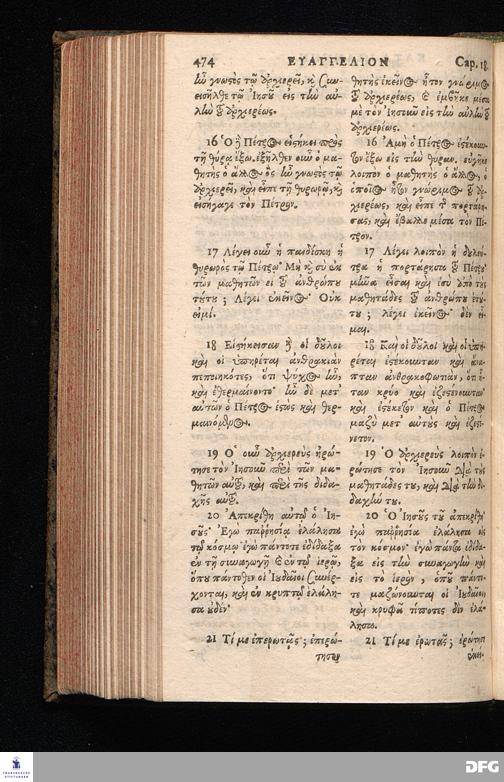 474 ΕΥΑΓΓΕΛΙΟΝ Cap. 18
ἦν γνωστὸς τῷ ἀρχιερεῖ, καὶ συν-
εισῆλθε τῷ Ἰησοῦ εἰς τὴν αὐ-
λὴν τοῦ ἀρχιερέως.
16 Ὁ δὲ Πέτρος εἱστήκει πρὸς
τῇ θύρᾳ ἔξω. ἐξῆλθεν οὖν ὁ μα-
θητὴς ὁ ἄλλος ὃς ἦν γνωστὸς τῷ
ἀρχιερεῖ, καὶ εἶπε τῇ θυρωρῷ, καὶ
εἰσήγαγε τὸν Πέτρον.
17 Λέγει οὖν ἡ παιδίσκη ἡ
θυρωρὸς τῷ Πέτρῳ· Μὴ καὶ σὺ ἐκ
τῶν μαθητῶν εἶ τοῦ ἀνθρώπου
τούτου; Λέγει ἐκεῖνος· Οὐκ
εἰμί.
18 Εἱστήκεισαν δὲ οἱ δοῦλοι
καὶ οἱ ὑπηρέται ἀνθρακιὰν
πεποιηκότες, ὅτι ψύχος ἦν,
καὶ ἐθερμαίνοντο· ἦν δὲ μετ'
αὐτῶν ὁ Πέτρος ἑστὼς καὶ θερ-
μαινόμενος.
19 Ὁ οὖν ἀρχιερεὺς ἠρώ-
τησε τὸν Ἰησοῦν περὶ τῶν μα-
θητῶν αὐτοῦ, καὶ περὶ τῆς διδα-
χῆς αὐτοῦ.
20 Ἀπεκρίθη αὐτῷ ὁ Ἰη-
σοῦς· Ἐγὼ παῤῥησίᾳ ἐλάλησα
τῷ κόσμῳ· ἐγὼ πάντοτε ἐδίδαξα
ἐν τῇ συναγωγῇ καὶ ἐν τῷ ἱερῷ,
ὅπου πάντοθεν οἱ Ἰουδαῖοι συνέρ-
χονται, καὶ ἐν κρυπτῷ ἐλάλη-
σα οὐδέν·
21 Τί με ἐπερωτᾷς; ἐπερώ-
τησον
θητὴς ἐκεῖνος ἦτον γνώριμος
τοῦ ἀρχιερέως, καὶ ἐμβῆκε μέσα
μὲ τὸν Ἰησοῦν εἰς τὴν αὐλὴν τοῦ
ἀρχιερέως.
16 Ἀμὴ ὁ Πέτρος ἐστέκουν-
τον ἔξω εἰς τὴν θύραν. εὐγῆκε
λοιπὸν ὁ μαθητὴς ὁ ἄλλος, ὁ
ὁποῖος ἦτον γνώριμος τοῦ ἀρ-
χιερέως, καὶ εἶπε τῆς πορτάρι-
σας, καὶ ἔβαλλε μέσα τὸν Πέ-
τρον.
17 Λέγει λοιπὸν ἡ δουλεύ-
τρα ἡ πορτάρησα τοῦ Πέτρου·
μήνα εἶσαι καὶ ἐσὺ ἀπὸ τοὺς
μαθητάδες τοῦ ἀνθρώπου ἐτού-
του; λέγει ἐκεῖνος· δὲν εἶ-
μαι.
18 Καὶ οἱ δοῦλοι καὶ οἱ ὑπη-
ρέται ἐστέκουνταν καὶ ἄνα-
πταν ἀνθρακοφωτιὰν, ὅτι ἦ-
ταν κρύο καὶ ἐζεσταίνουνταν·
καὶ ἐστέκετον καὶ ὁ Πέτρος
μαζὺ μετ' αὐτοὺς καὶ ἐζεσ-
ταίνετον.
19 Ὁ ἀρχιερεὺς λοιπὸν ἐ-
ρώτησε τὸν Ἰησοῦν διὰ τοὺς
μαθητάδες του, καὶ διὰ τὴν δι-
δαχήν του.
20 Ὁ Ἰησοῦς τοῦ ἀπεκρίθη·
ἐγὼ παῤῥησίᾳ ἐλάλησα εἰς
τὸν κόσμον· ἐγὼ πάντα ἐδίδα-
ξα εἰς τὴν συναγωγὴν καὶ
εἰς τὸ ἱερὸν, ὁποῦ πάντο-
τε μαζώνουνται οἱ Ἰουδαῖοι,
καὶ κρυφὰ τίποτες δὲν ἐλά-
λησα.
21 Τί με ἐρωτᾷς; ἐρώτησε
ἐκεί-
FRANCKESCHE
STIFTUNGEN
DFG